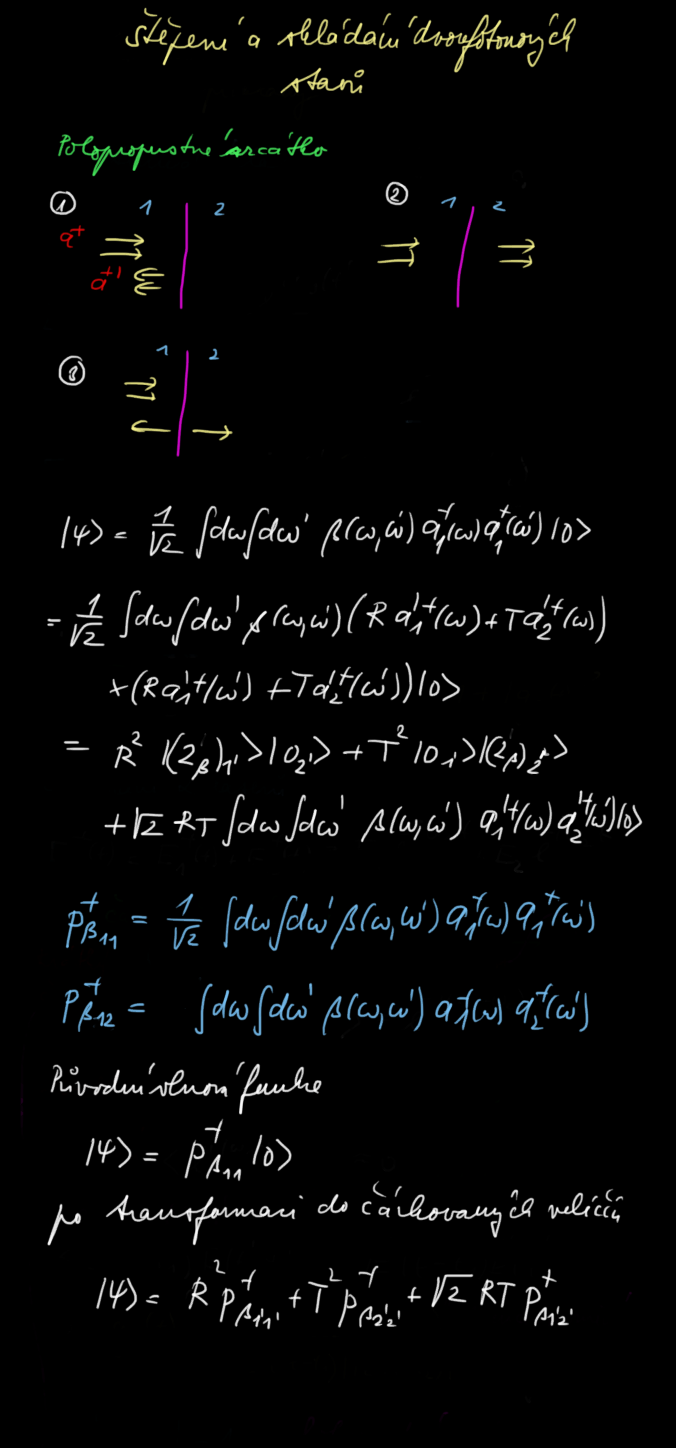 štěpení a skládání dvoufotonových
stavů
Polopropustné zrcátko
① 1 2
a⁺
a⁺'
② 1 2
③ 1 2
|ψ> = 1/√2 ∫dω∫dω' β(ω,ω') a₁⁺(ω) a₁⁺(ω') |0>
= 1/√2 ∫dω∫dω' β(ω,ω') (R a₁'⁺(ω) + T a₂'⁺(ω))
×(R a₁'⁺(ω') + T a₂'⁺(ω')) |0>
= R² |(2_β)_1'> |0_2'> + T² |0_1'> |(2_β)_2'>
+ √2 RT ∫dω∫dω' β(ω,ω') a₁'⁺(ω) a₂'⁺(ω') |0>
P⁺_β11 = 1/√2 ∫dω∫dω' β(ω,ω') a₁⁺(ω) a₁⁺(ω')
P⁺_β12 = ∫dω∫dω' β(ω,ω') a₁⁺(ω) a₂⁺(ω')
Původní vlnová funkce
|ψ> = P⁺_β11 |0>
po transformaci do čárkovaných veličin
|ψ> = R² P⁺_β1'1' + T² P⁺_β2'2' + √2 RT P⁺_β1'2'